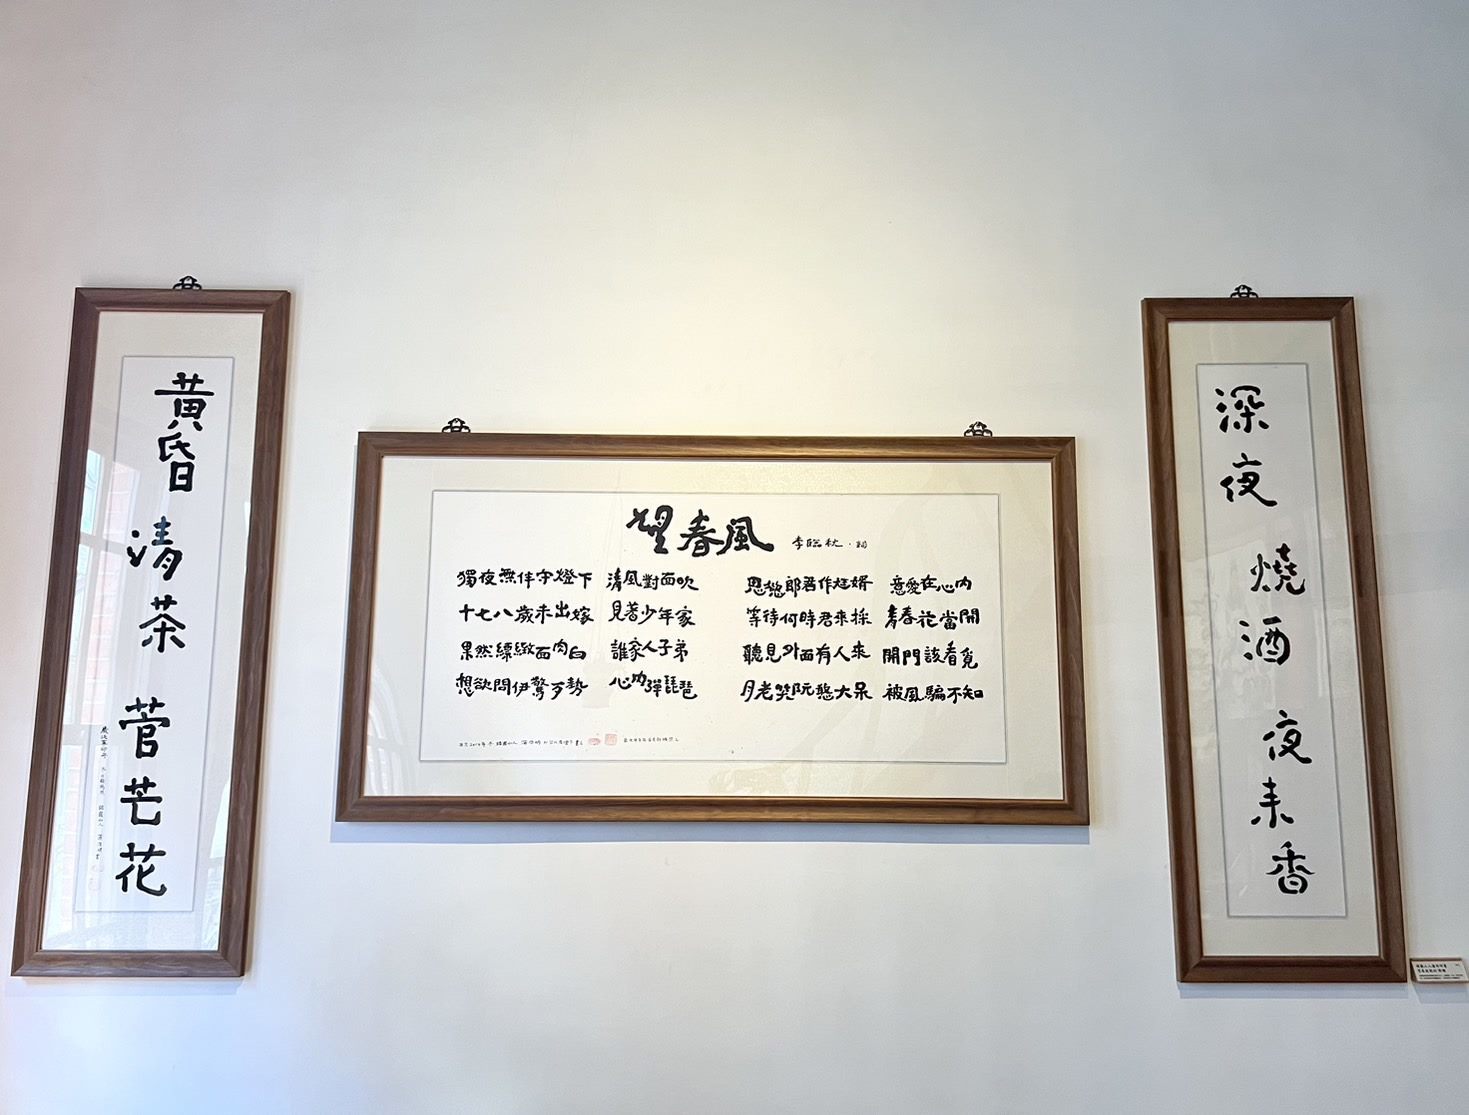 深夜 燒酒 夜來香
望春風 李臨秋·詞
獨夜無伴守燈下 清風對面吹
十七八歲未出嫁 見著少年家
果然縹緻面肉白 誰家人子弟
想欲問伊驚歹勢 心內彈琵琶
思慾郎君作尪婿 意愛在心內
等待何時君來採 青春花當開
聽見外面有人來 開門該看覓
月老笑阮憨大呆 被風騙不知
黃昏 清茶 菅芒花